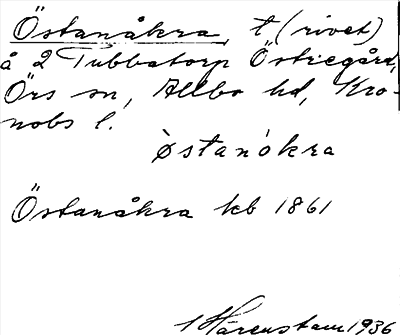 Östanåkra, t. (rivet)
å 2 Tubbatorp Östregård,
Örs sn, Allbo hd, Kro-
nobs l.
östanåkra
Östanåkra kb 1861
Hårenstam 1936